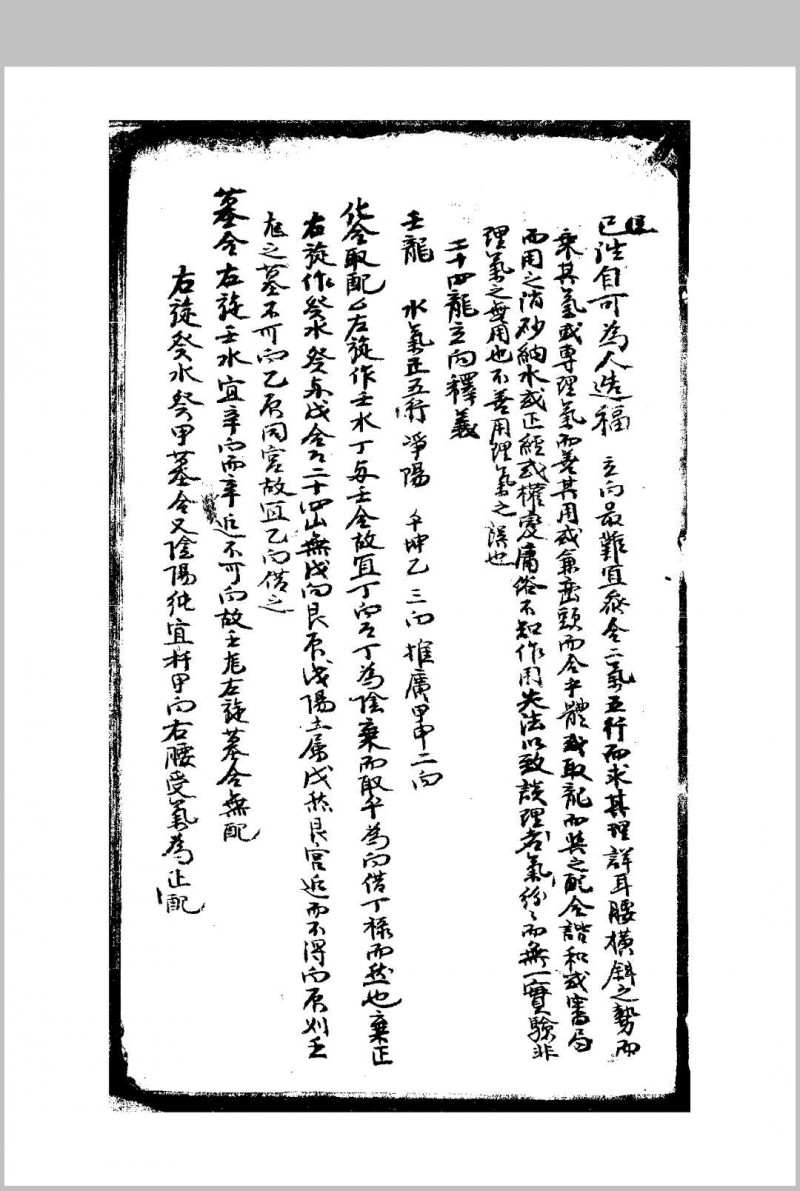 已往自可為人造福 立向最難宜參合二氣五行而求其理詳耳腰橫斜之勢而
乘其氣或專理氣而善其用或兼巒頭而合乎體或取龍而與之配合諧和或審局
而用之消砂納水或正經或權變庸俗不知作用失法以致談理者氣紛紛而無一實驗非
理氣之無用也不善用理氣之誤也
二十四龍立向釋義
壬龍 水氣正五行 淨陽 午坤乙三向 推廣甲申二向
化合取配 左旋作壬水丁與壬合故宜丁向 丁為陰棄而取午為向借丁祿而然也棄正
右旋作癸水癸与戊合 二十四山無戊向艮辰戌陽土屬戊然艮宮近而不得向辰列壬
龙之墓不可向乙辰同宮故宜乙向借之
墓合左旋壬水宜辛向而辛近不可向故壬龙左旋墓合無配
右旋癸水癸甲墓合又陰陽純宜杆甲向右腰受氣為正配